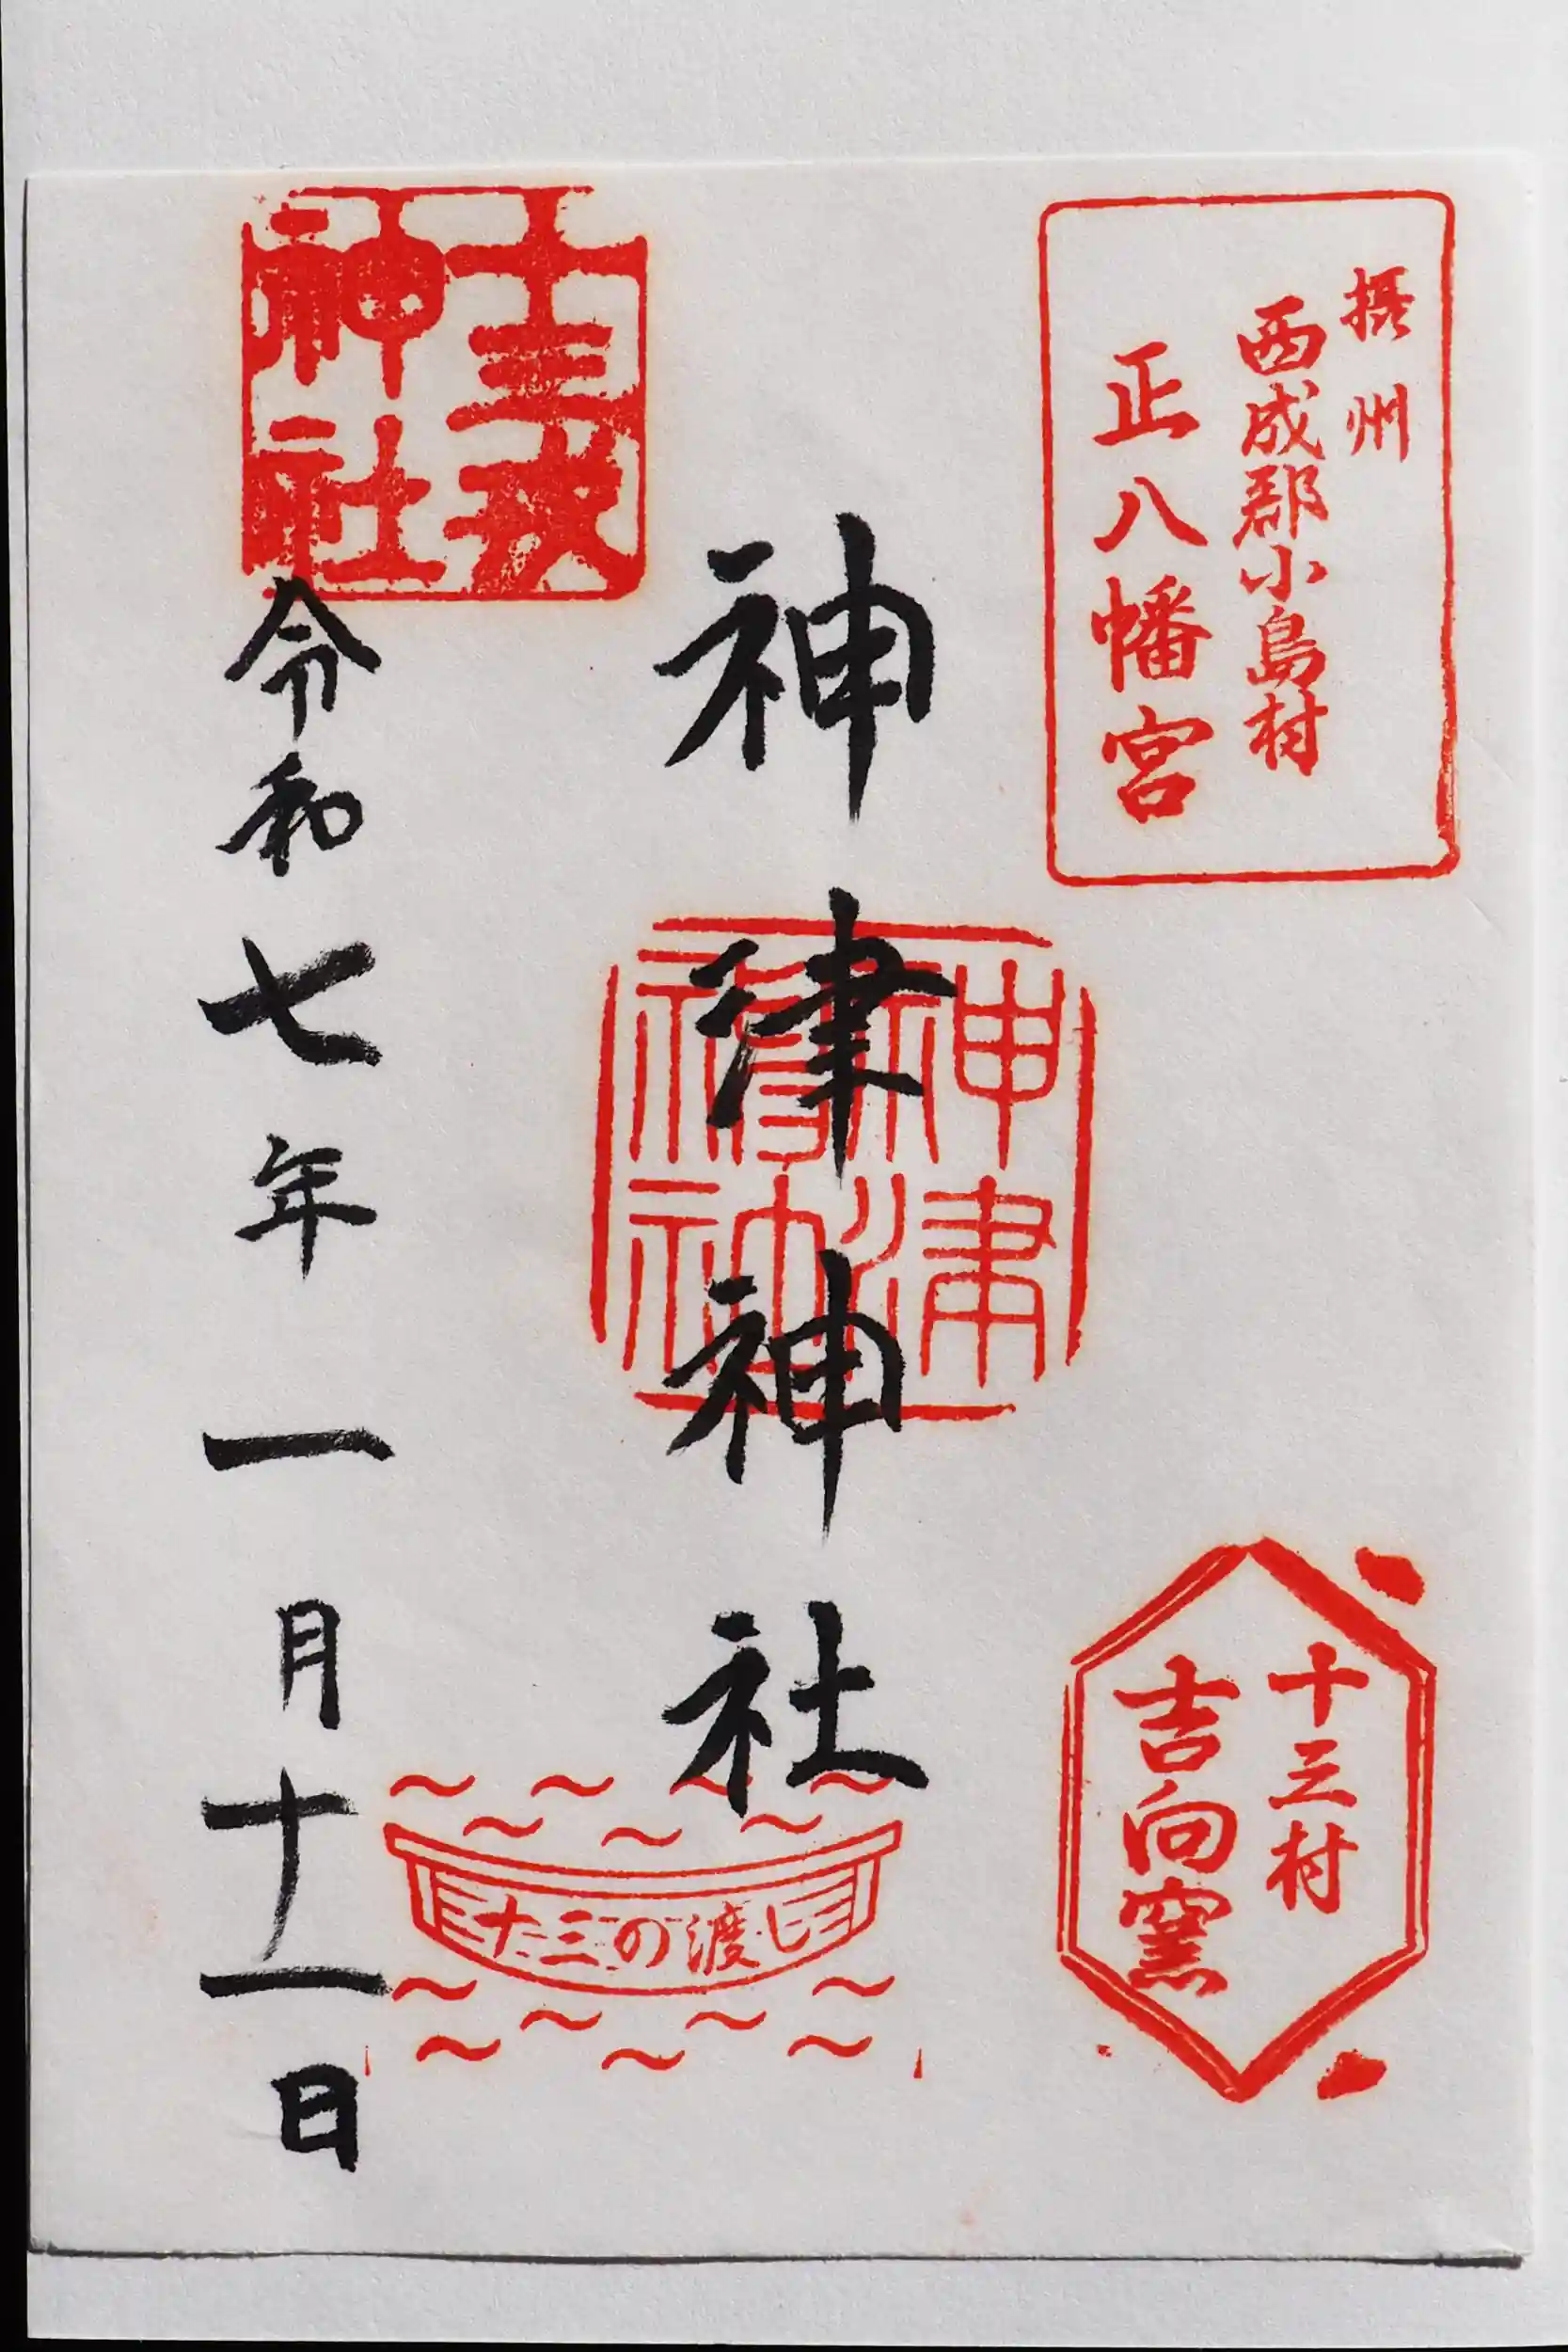 摂州
西成郡小島村
正八幡宮
十三村
吉向窯
神津神社
神津
神社
十三の渡し
十三戎
神社
令和七年一月十一日